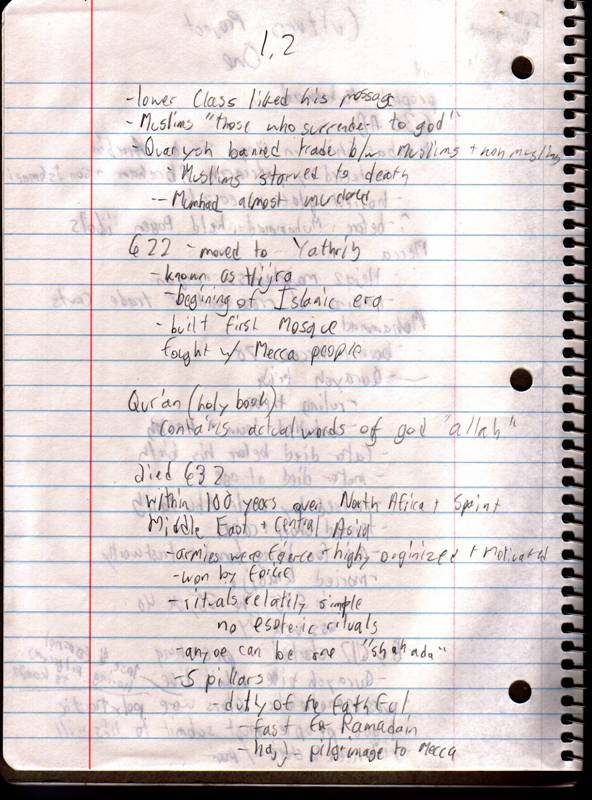 1,2
-lower Class liked his message
- Muslims "those who surrender to god"
- Quarysh banned trade b/w Muslims + non muslims
Muslims starved to death
-- Mumhad almost murdered
622 - moved to Yathrib
-known as Hijra
-begining of Islamic era
- built first Mosque
fought w/ Mecca people
Qur'an (holy book)
contains actual words of god "allah"
died 632
within 100 years over North Africa + Spain +
Middle East + Central Asia
-armies were fierce + highly orginized + motivated
-won by force
-rituals relatily simple
no esoteric rituals
-anyoe can be one "shahada"
-5 pillars
-duty of the faithful
-fast for Ramadain
-hajj pilgrimage to Mecca